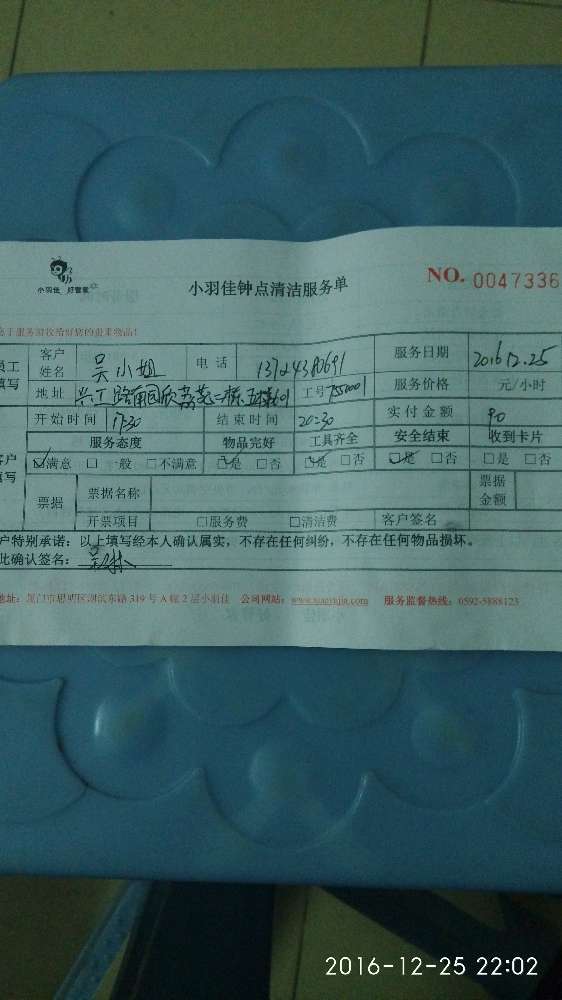 小羽佳 好管家
小羽佳钟点清洁服务单
NO. 0047336
于服务前收给好您的贵重物品！
员工填写 客户姓名 吴小姐 电话 服务日期 2016.12.25
地址 工号 服务价格 元/小时
开始时间 17:30 结束时间 20:30 实付金额 90
服务态度 物品完好 工具齐全 安全结束 收到卡片
客户填写 ☑满意 □一般 □不满意 ☑是 □否 ☑是 □否 ☑是 □否 □是 □否
票据 票据名称 票据金额
开票项目 □服务费 □清洁费 客户签名
户特别承诺：以上填写经本人确认属实，不存在任何纠纷，不存在任何物品损坏。
此确认签名：
地址：厦门市思明区湖滨东路 319 号 A 幢 2 层小羽佳 公司网站： 服务监督热线：0592-5888123
2016-12-25 22:02